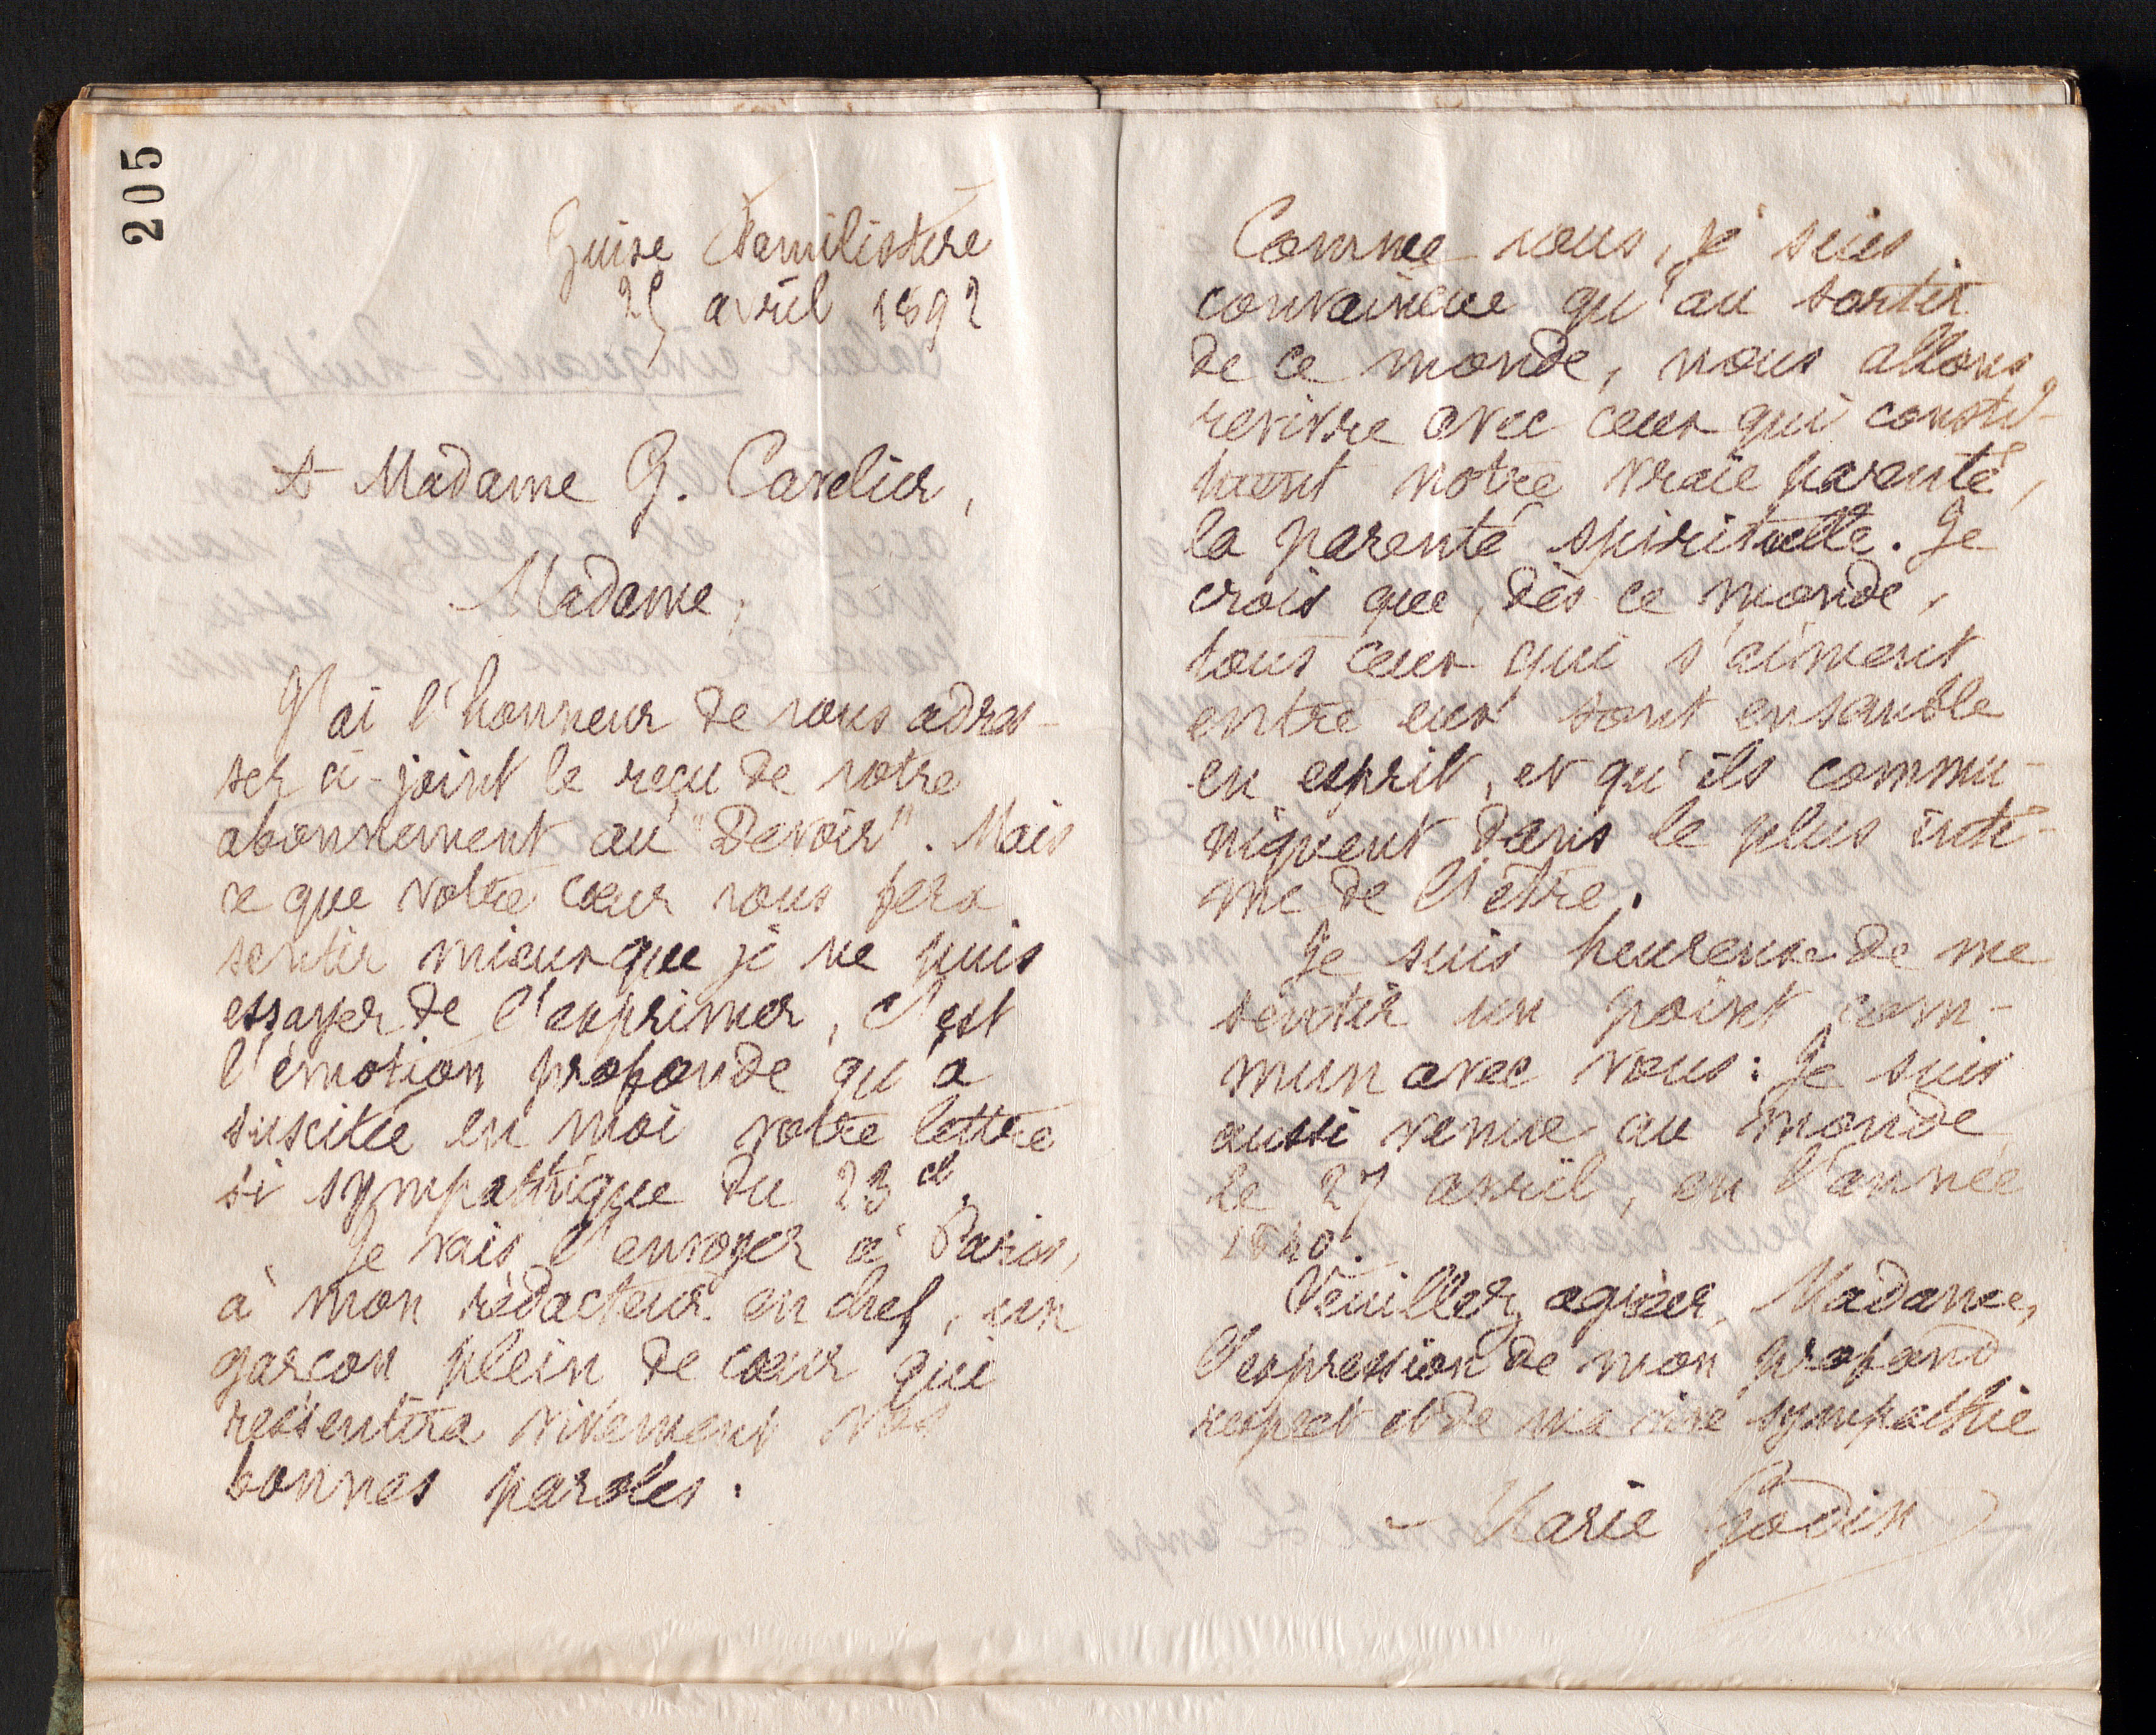 205
Guise Familistère
25 avril 1892
A Madame G. Cavelier,
Madame,
J'ai l'honneur de vous adres-
ser ci-joint le reçu de votre
abonnement au "Devoir". Mais
ce que votre cœur vous fera
sentir mieux que je ne puis
essayer de l'exprimer, c'est
l'émotion profonde qu'a
suscitée en moi votre lettre
si sympathique du 23 ct.
Je vais l'envoyer à Paris,
à mon rédacteur en chef, un
garçon plein de cœur qui
ressentira vivement vos
bonnes paroles.
Comme vous, je suis
convaincue qu'au sortir
de ce monde, nous allons
revivre avec ceux qui consti-
tuent notre vraie parenté,
la parenté spirituelle. Je
crois que, dès ce monde,
tous ceux qui s'aiment
entre eux sont ensemble
en esprit, et qu'ils commu-
niquent dans le plus inti-
me de l'être.
Je suis heureuse de me
sentir un point com-
mun avec vous: Je suis
aussi venue au monde
le 27 avril, en l'année
1840.
Veuillez agréer, Madame,
l'expression de mon profond
respect et de ma vive sympathie
Marie Godin